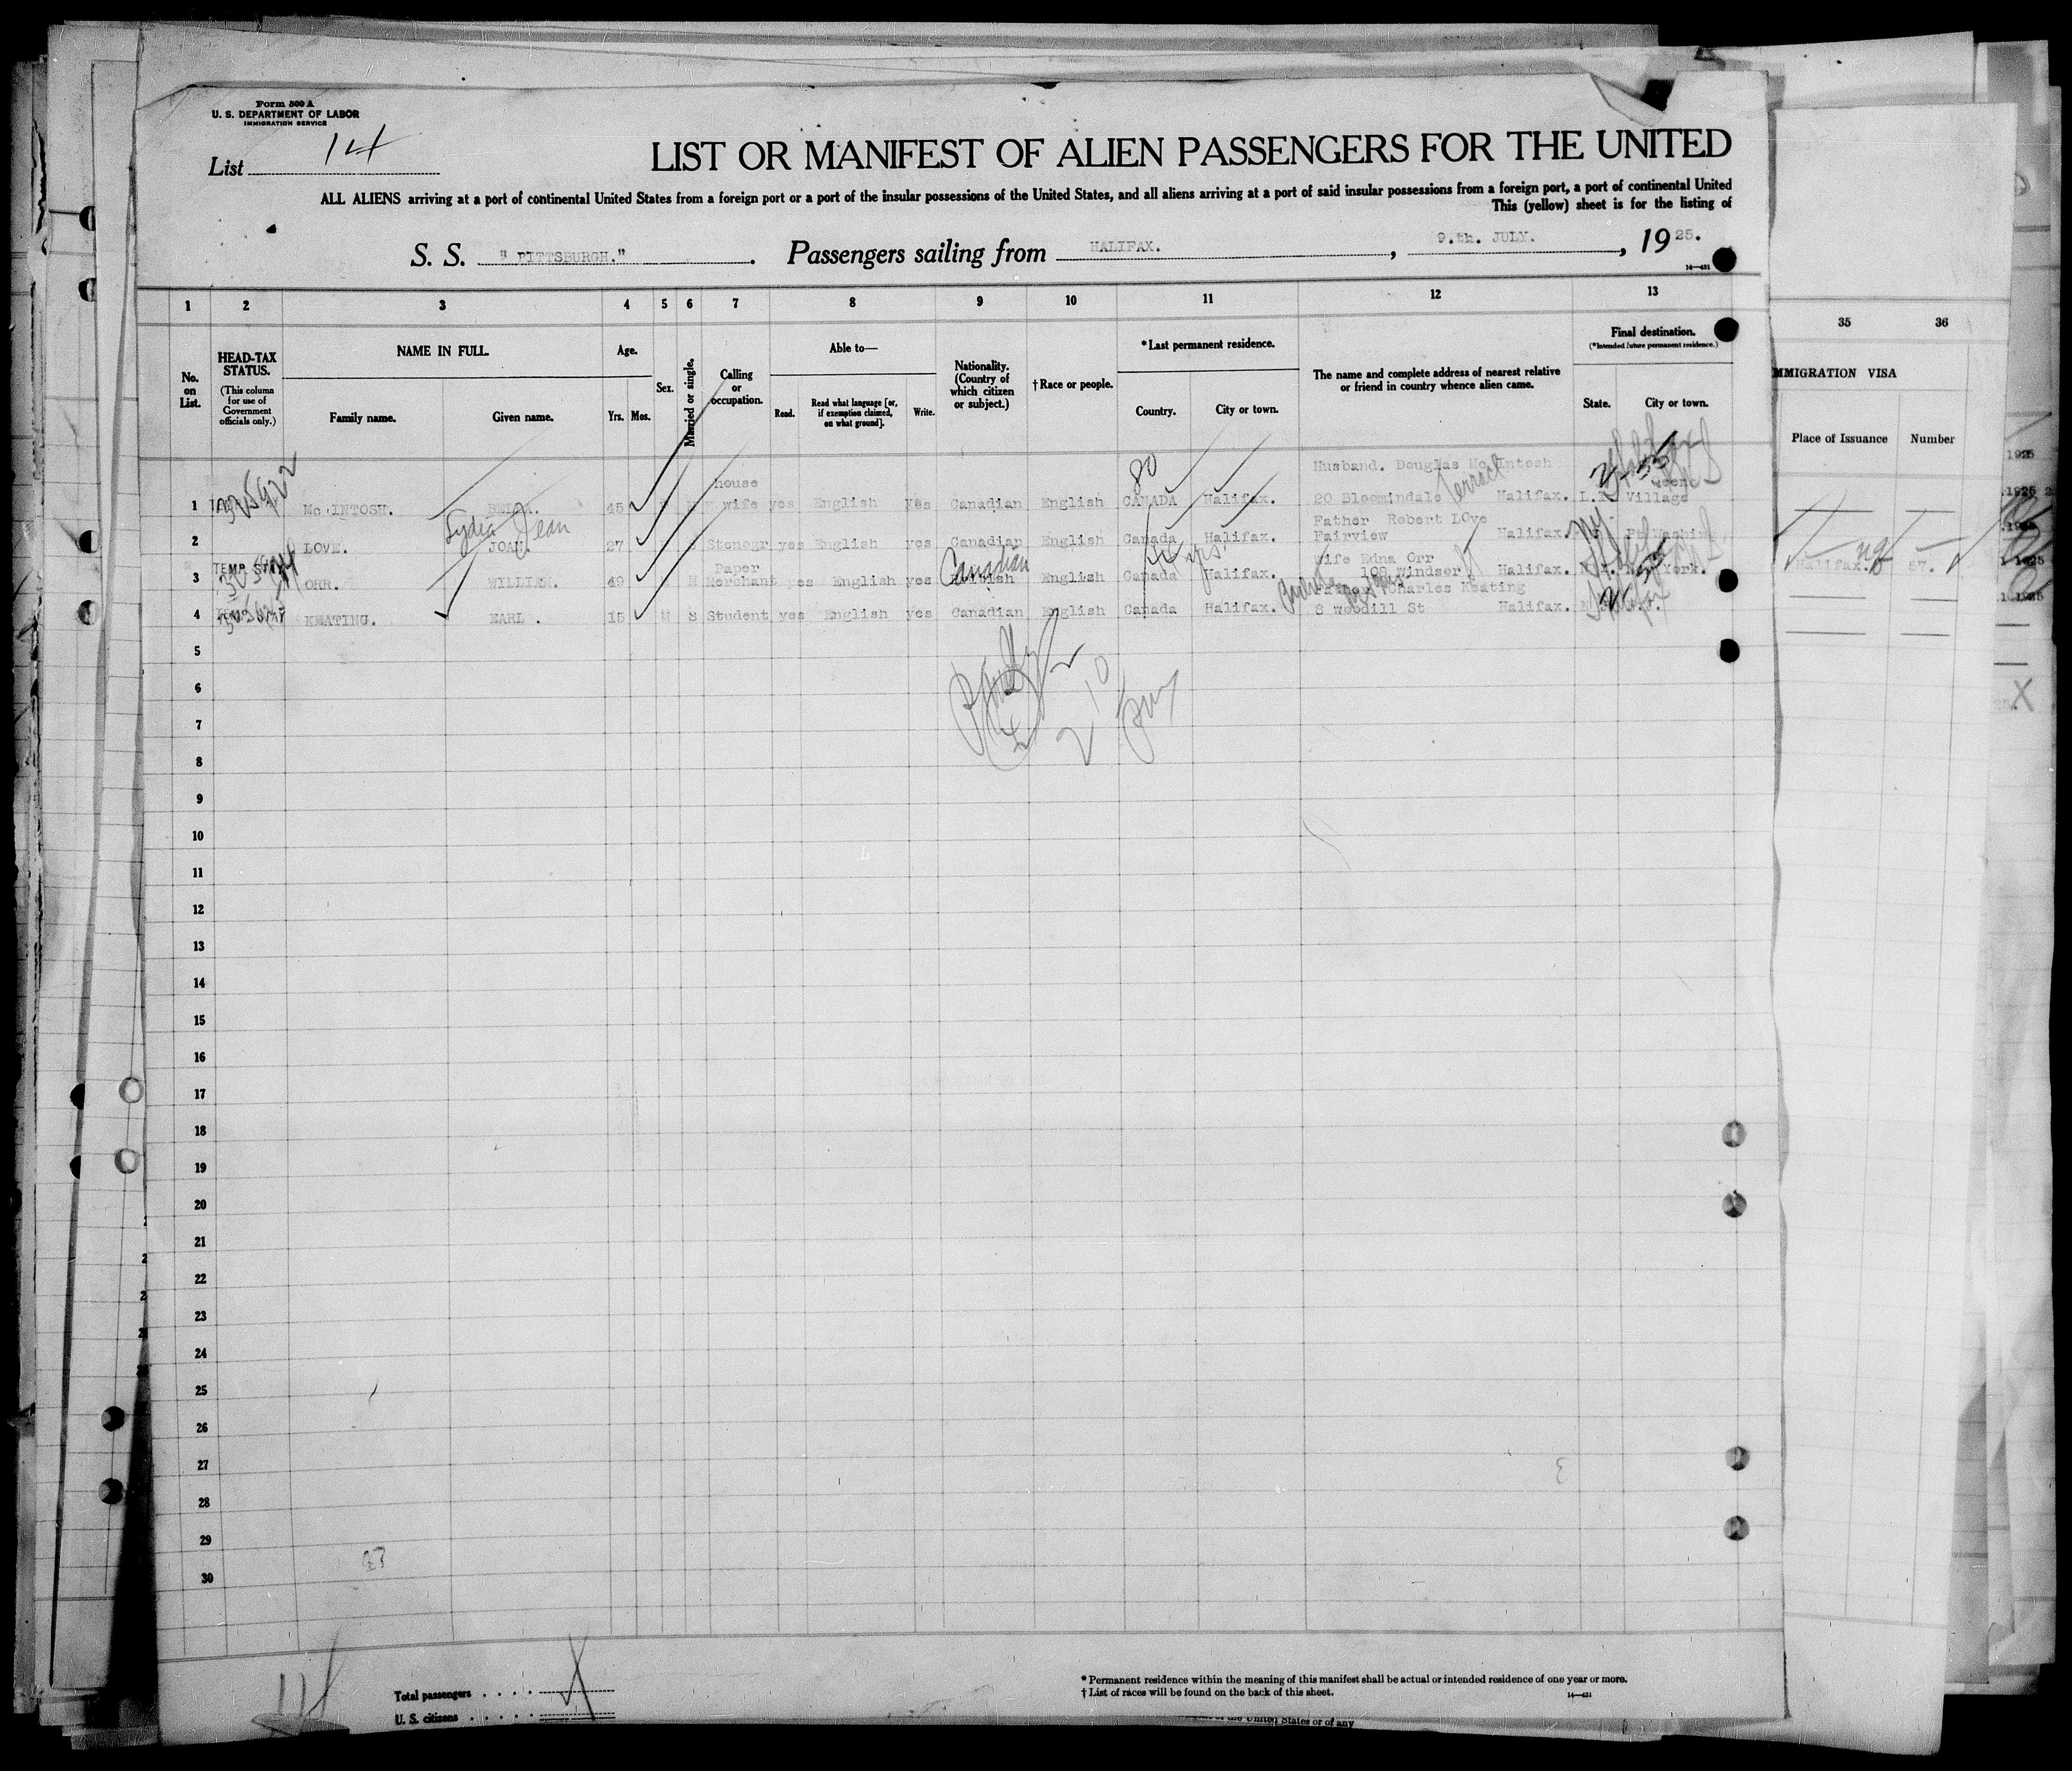 Form 500 A
U. S. DEPARTMENT OF LABOR
IMMIGRATION SERVICE
List 14
LIST OR MANIFEST OF ALIEN PASSENGERS FOR THE UNITED
ALL ALIENS arriving at a port of continental United States from a foreign port or a port of the insular possessions of the United States, and all aliens arriving at a port of said insular possessions from a foreign port, a port of continental United
This (yellow) sheet is for the listing of
S. S. "PITTSBURGH." Passengers sailing from HALIFAX. , 9.th. JULY. , 1925.
14—431
1 2 3 4 5 6 7 8 9 10 11 12 13
35 36
No. on List.
HEAD-TAX STATUS.
(This column for use of Government officials only.)
NAME IN FULL.
Family name. Given name.
Age.
Yrs. Mos.
Sex.
Married or single.
Calling or occupation.
Able to—
Read. Read what language [or, if exemption claimed, on what ground]. Write.
Nationality. (Country of which citizen or subject.)
† Race or people.
*Last permanent residence.
Country. City or town.
The name and complete address of nearest relative or friend in country whence alien came.
Final destination.
(*Intended future permanent residence.)
State. City or town.
MMIGRATION VISA
Place of Issuance Number
80
Husband. Douglas Mc Intosh
house
1 Mc INTOSH. 45 wife yes English yes Canadian English CANADA Halifax. 20 Bloomindale Terrace Halifax. L.I. Village
Lydia Jean
Father Robert LOve
2 LOVE. JOAN. 27 S Stenogr yes English yes Canadian English Canada Halifax. Fairview Halifax.
Paper Canadian wife Edna Orr
3 TEMP. STAY ORR. WILLIAM. 49 M Merchant yes English yes English Canada Halifax. 108 Windser Halifax. York.
Halifax. 57.
Charles Keating
4 KEATING. EARL. 15 M S Student yes English yes Canadian English Canada Halifax. 8 Woodill St Halifax.
5
6
7
8
9
10
11
12
13
14
15
16
17
18
19
20
21
22
23
24
25
26
27
28
29
30
Total passengers . . . .
U. S. citizens . . . . .
* Permanent residence within the meaning of this manifest shall be actual or intended residence of one year or more.
† List of races will be found on the back of this sheet.
14—431
of the United States or of any